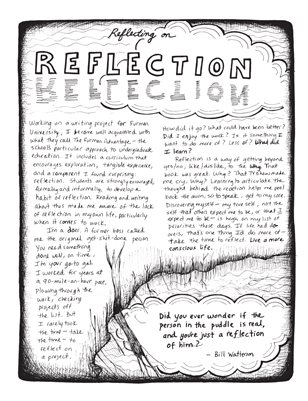 Reflecting on
REFLECTION
Working on a writing project for Furman
University, I became well acquainted with
what they call The Furman Advantage, – the
school's particular approach to undergraduate
education. It includes a curriculum that
encourages exploration, tangible experience,
and a component I found surprising:
reflection. Students are strongly encouraged,
formally and informally, to develop a
habit of reflection. Reading and writing
about this made me aware of the lack
of reflection in my own life, particularly
when it comes to work.
I'm a doer. A former boss called
me the original get-shit-done person
You need something
done well, on time.
I'm your go-to gal
I worked for years at
a 90-mile-an-hour pace,
Plowing through the
work, checking
projects off
the list. But
I rarely took
the time – take
the time – to
reflect on
a project.
How did it go? What could have been better?
Did I enjoy the work? Is it something I
want to do more of? Less of? What did
I learn?
Reflection is a way of getting beyond
yes/no, like/dislike, to the why. That
work was great. Why? That TV show made
me cry. Why? Learning to articulate the
thought behind the reaction helps me peel
back the onion, so to speak, get to my core.
Discovering myself – my true self, not the
self that others expect me to be, or that I
expect me to be – is high on my list of
priorities these days. If life had do-
overs, that's one thing I'd do more of:
take the time to reflect. Live a more
conscious life.
Did you ever wonder if the
person in the puddle is real,
and you're just a reflection
of him?
– Bill Watterson